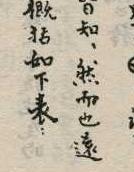 知、然而也遠
概括如下表：